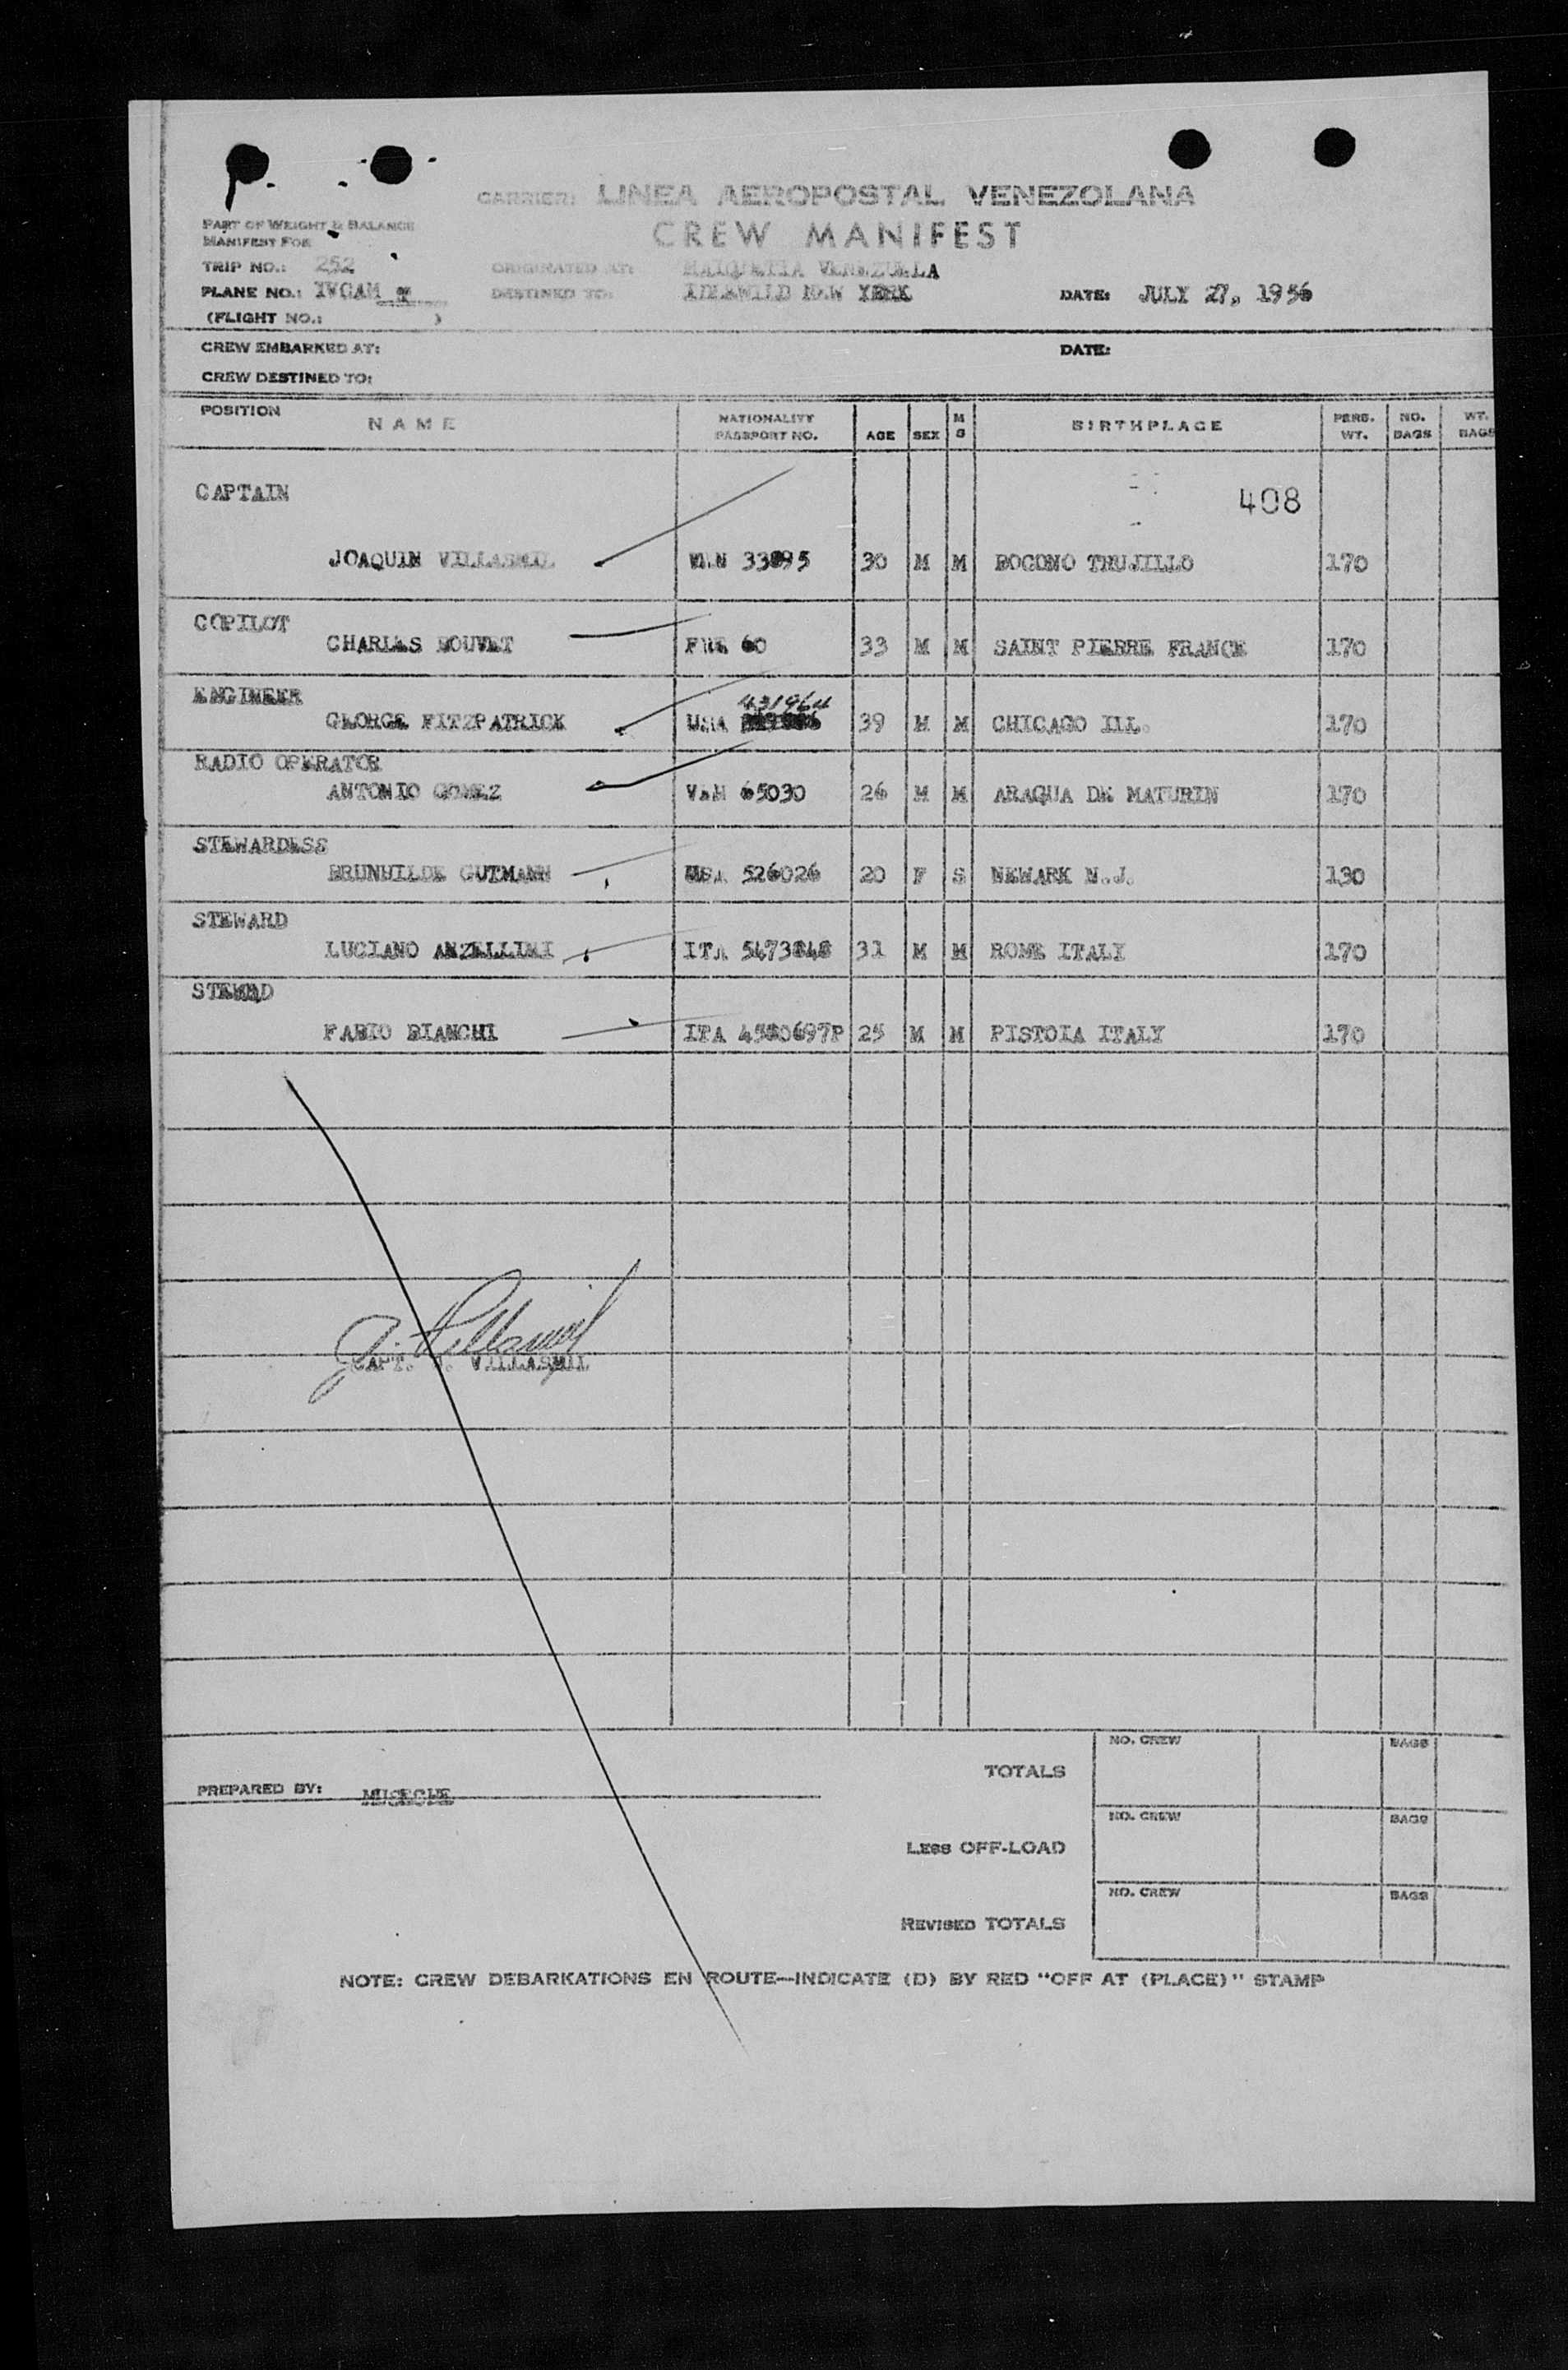 CARRIER: LINEA AEROPOSTAL VENEZOLANA
PART OF WEIGHT & BALANCE
MANIFEST FOR
CREW MANIFEST
TRIP NO.: 252 ORIGINATED AT: MAIQUETIA VENEZUELA
PLANE NO.: YVCAM DESTINED TO: IDLEWILD NEW YORK DATE: JULY 27, 1956
(FLIGHT NO.: )
CREW EMBARKED AT: DATE:
CREW DESTINED TO:
POSITION NAME NATIONALITY PASSPORT NO. AGE SEX M S BIRTHPLACE PERS. WT. NO. BAGS WT. BAGS
CAPTAIN 408
JOAQUIN VILLASMIL VEN 33895 30 M M BOCONO TRUJILLO 170
COPILOT
CHARLES BOUVET FRE 60 33 M M SAINT PIERRE FRANCE 170
ENGINEER 431964
GEORGE FITZPATRICK USA 39 M M CHICAGO ILL. 170
RADIO OPERATOR
ANTONIO GOMEZ VEN 65030 26 M M ARAGUA DE MATURIN 170
STEWARDESS
BRUNHILDE GUTMANN USA 526026 20 F S NEWARK N.J. 130
STEWARD
LUCIANO ANZELLINI ITA 5473848 31 M M ROME ITALY 170
FABIO BIANCHI ITA 4580697P 25 M M PISTOIA ITALY 170
J. Villasmil
CAPT. J. VILLASMIL
PREPARED BY:
TOTALS NO. CREW BAGS
LESS OFF-LOAD NO. CREW BAGS
REVISED TOTALS NO. CREW BAGS
NOTE: CREW DEBARKATIONS EN ROUTE—INDICATE (D) BY RED "OFF AT (PLACE)" STAMP